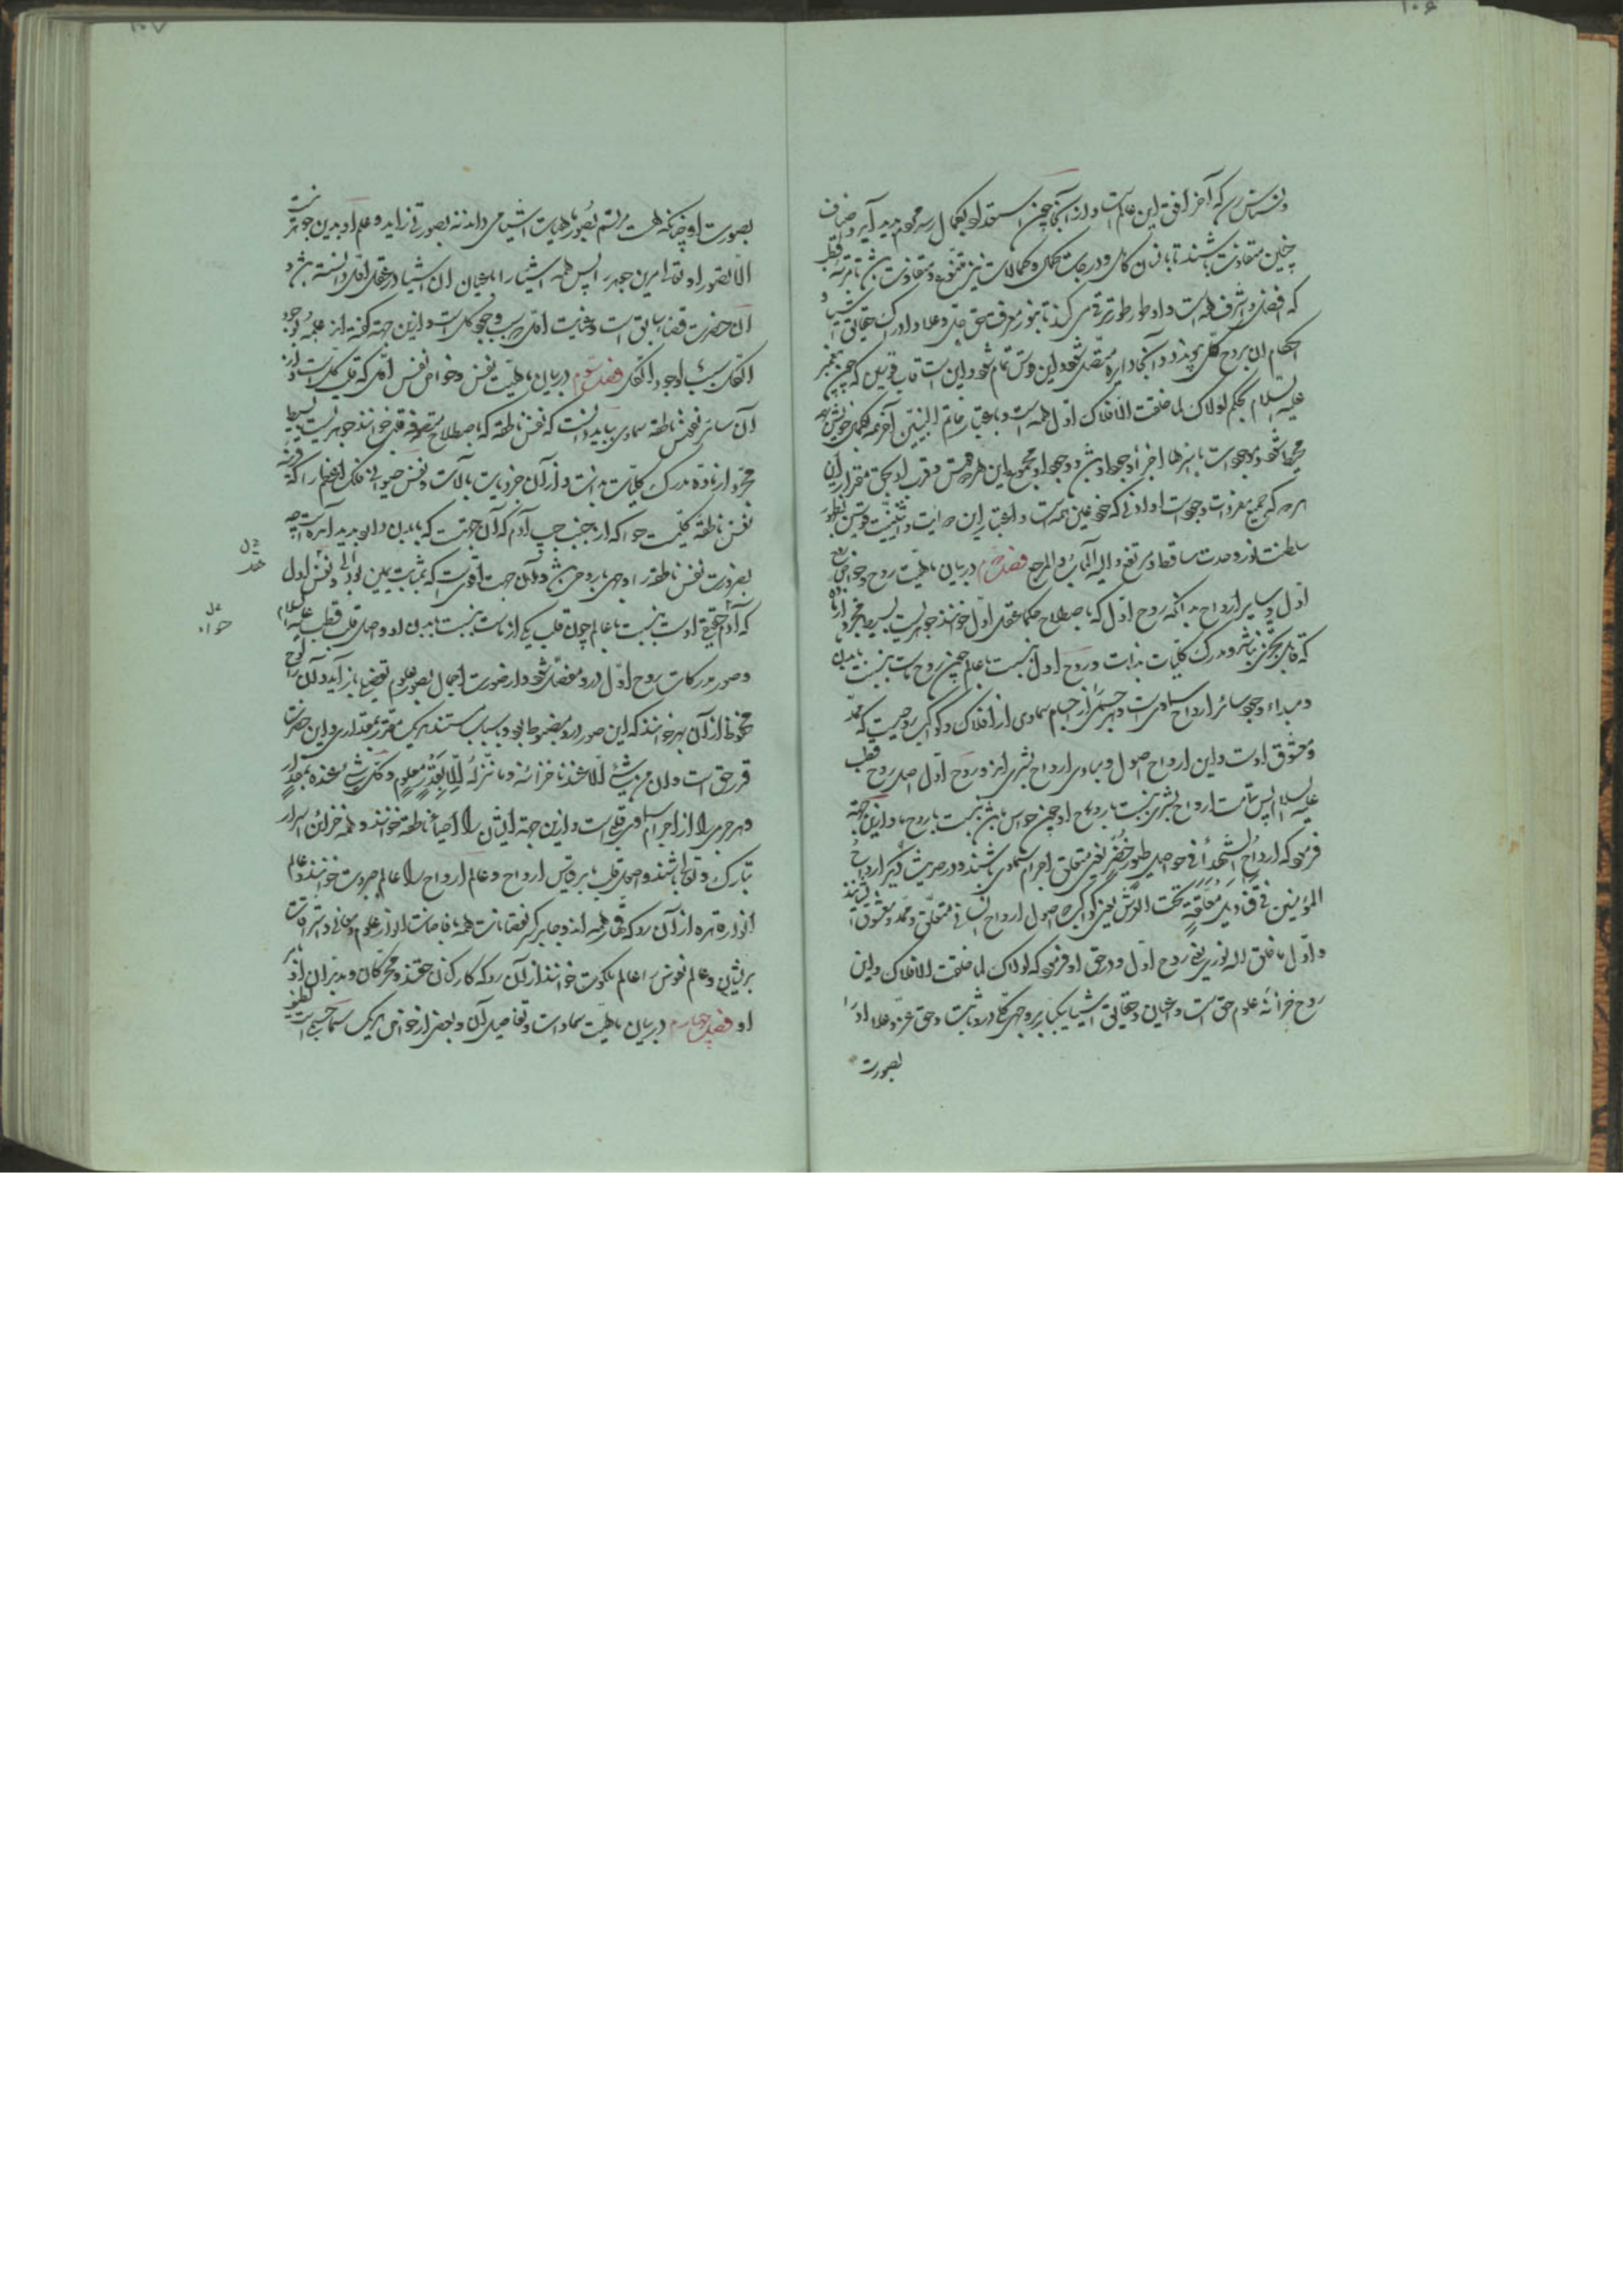 ۱۰۶
ونسناس رسد که آخر افق این عالم است و از آنجا چون استعداد او بکمال رسد مردم پدید آید و اصناف
چنین متفاوت باشند تا بانسان کامل و درجات کمال و کمالات نیز متنوع و متفاوت باشد تا مرتبه قطب
که افضل و اشرف همه است و او طور طور ترقی می کند تا بنور معرفت حق جل و علا و ادراک حقایق اشیا و
احکام آن بروح کلی پیوندد و آنجا دایره متصل شود و این قوس تمام شود و این است قاب قوسین که چون پیغمبر
علیه السلام بحکم لولاک لما خلقت الافلاک اول همه است و باعتبار خاتم النبیین آخر همه
محیط شود و موجودات باسرها اجزاء وجود او باشد و وجود او مجموع این هر دو قوس
هر چه که جمیع مفردات وجود است او ادنی که خود عین همه است و باعتبار این
سلطنت نور وحدت ساقط و مرتفع والیه المآب والمرجع فصل دوم در بیان ماهیت روح و خواص روح
اول و سایر ارواح بدانکه روح اول که باصطلاح حکما عقل اول خوانند جوهریست بسیط مجرد از ماده
که قابل تجزی نباشد و مدرک کلیات بذات و روح اول نسبت با عالم چون روح ماست بنسبت با بدن
و مبداء وجود سائر ارواح سماوی است و هر جسمی را از اجسام سماوی از افلاک و کواکب روحیست که ممد
و معشوق اوست و این ارواح اصول و مبادی ارواح بشری اند و روح اول اصل روح قطب
علیه السلام پس تمامت ارواح بشری بنسبت با روح او چون حواس باشد بنسبت با روح ما و ازین جهة
فرمود که ارواح الشهداء فی حواصل طیور خضر یعنی متعلق اجرام سماوی باشند و در حدیث دیگر ارواح
المؤمنین فی قنادیل معلقة تحت العرش یعنی کواکب که اصول ارواح انسانی متعلق و ممد و معشوق ایشانند
و اول ما خلق الله نوری یعنی روح اول و در حق او فرمود که لولاک لما خلقت الافلاک و این
روح خزانهٔ علوم حق است و اعیان و حقایق اشیا یکبار بر وجهی کلی درو ثابت و حق عز و علا او را
بصورت
۱۰۷
بصورت او چنانکه هست مرتسم بصور ماهیات اشیا می داند نه بصورتی زاید و علم او بدین جوهر نیست
الا بصور او تقرر این جوهر پس همه اشیا را باعیان آن اشیا در عقل اول دانسته باشد و
آن حضرت قضاء سابق است و عنایت اولی و سبب وجود کل است و ازین جهة گفته اند علمه بوجود
الکل سبب لوجود الکل فصل سوم در بیان ماهیت نفس و خواص نفس اول که قلب کل است و از
آن سائر نفوس ناطقه سماوی بباید دانست که نفس ناطقه که باصطلاح متصوفه قلب خوانند جوهریست بسیط
مجرد از ماده مدرک کلیات بذات و از آن جزویات بآلات و نفس حیوانی فلک اعظم را که
نفس ناطقه کلیست حوا که از جنب چپ آدم که آن جهتیست که با بدن دارد پدید آمده است چه
بضرورت نفس ناطقه را وجهی با روحی باشد و آن جهت اقوی است که بمثابت یمین بود و نفس اول
که آدم حقیقی اوست بنسبت با عالم چون قلب یکی از ماست بنسبت با بدن او و اصل قلب قطب علیه السلام
و صور مدرکات روح اول درو مفصل شود و از صورت اجمال بصور علوم تفصیل باز آید و آن را لوح
محفوظ از آن بهر خوانند که این صور درو مضبوط بود و باسباب مستند هر یک مقرر بمقداری و این حضرت
قدر حق است و ان من شیء الا عندنا خزائنه و ما ننزله الا بقدر معلوم و کل شیء عنده بمقدار
و هر جرمی را از اجرام سماوی قلبی است و ازین جهة ایشان را احیاء ناطقه خوانند و همه خزائن اسرار
تبارک و تعالی باشند و اصحاب قلب باز بر قیاس ارواح و عالم ارواح را عالم جبروت خوانند و عالم
انوار قاهره از آن رو که قاهر همه اند و جابر کسر نقصانات همه بافاضت انوار علوم و معانی و اشراقات
بریشان و عالم نفوس را عالم ملکوت خوانند از آن رو که کارکنان حقند و محرکان و مدبران
او فصل چهارم در بیان ماهیت سماوات و تفاصیل آن و بعضی از خواص هر یک